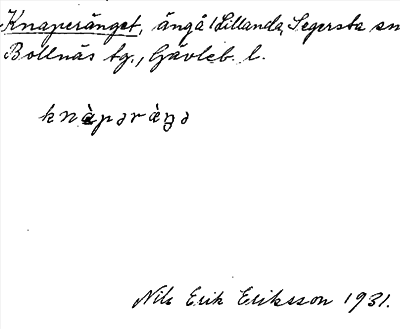 Knaperänget, ängå i Lillanda, Segersta sn
Bollnäs tg., Gävleb. l.
knàpəràŋə
Nils Erik Eriksson 1931.